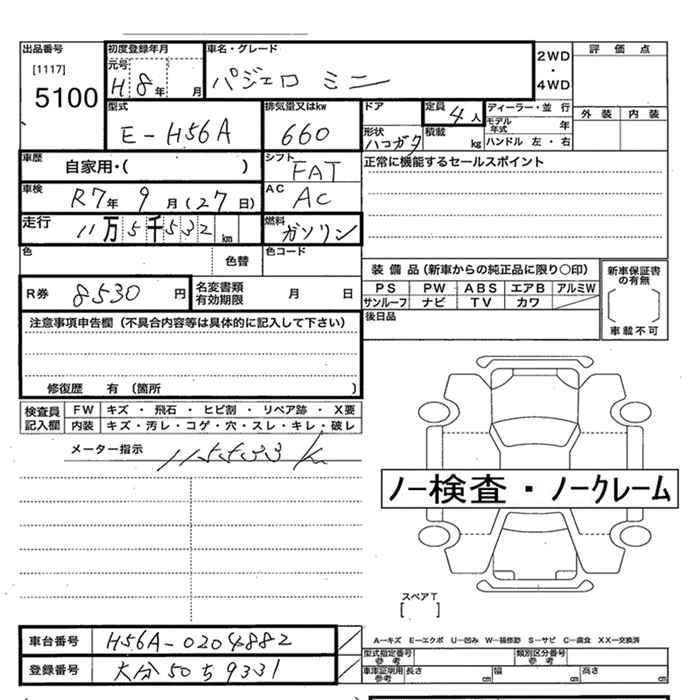 出品番号 初度登録年月 車名・グレード 2WD・4WD 評価点
[1117] 元号
5100 H 8 年 月 パジェロ ミニ
型式 排気量又はkw ドア 定員 ディーラー・並行 外装 内装
E-H56A 660 4人 モデル年式 年
形状 ハコガタ 積載 kg ハンドル 左・右
車歴 自家用・( ) シフト FAT 正常に機能するセールスポイント
車検 R7年 9月(27日) AC AC
走行 11万5千532km 燃料 ガソリン
色 色替 色コード
装備品(新車からの純正品に限り○印) 新車保証書の有無
R券 8530円 名変書類有効期限 月 日 PS PW ABS エアB アルミW
サンルーフ ナビ TV カワ 車載不可
注意事項申告欄(不具合内容等は具体的に記入して下さい) 後日品
修復歴 有(箇所 )
検査員記入欄 FW キズ・飛石・ヒビ割・リペア跡・X要
内装 キズ・汚レ・コゲ・穴・スレ・キレ・破レ
メーター指示 115533k
ノー検査・ノークレーム
スペアT
[ ]
車台番号 H56A-0204882 A―キズ E―エクボ U―凹み W―補修跡 S―サビ C―腐食 XX―交換済
型式指定番号 参考 類別区分番号 参考
登録番号 大分50ち9331 車庫証明用参考 長さ cm 幅 cm 高さ cm